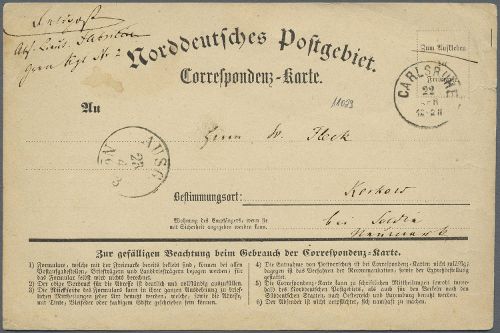 Feldpost
Norddeutsches Postgebiet.
Correspondenz-Karte.
Zum Aufkleben
der
Freimarke
CARLSRUHE
22
12-2N
11093
An
AUSG
23
No 3
Herrn W. Fleck
Bestimmungsort: Kerkow
Wohnung des Empfängers, wenn sie
mit Sicherheit angegeben werden kann.
bei Soldin
Neumark
Zur gefälligen Beachtung beim Gebrauch der Correspondenz-Karte.
1) Formulare, welche mit der Freimarke bereits beklebt sind, können bei allen
Postanstalten, Briefträgern und Landbriefträgern bezogen werden; für
das Formular selbst wird nichts berechnet.
2) Der obige Vordruck für die Adresse ist deutlich und vollständig auszufüllen.
3) Die Rückseite des Formulars kann in ihrer ganzen Ausdehnung zu brief-
lichen Mittheilungen jeder Art benutzt werden, welche, sowie die Adresse,
mit Tinte, Bleifeder oder farbigem Stifte geschrieben sein können.
4) Die Entnahme von Postvorschuß ist bei Correspondenz-Karten nicht zulässig;
dagegen ist das Verfahren der Recommandation, sowie der Expreßbestellung
gestattet.
5) Die Correspondenz-Karte kann zu schriftlichen Mittheilungen sowohl inner-
halb des Norddeutschen Postgebiets, als auch im Verkehr nach den
Süddeutschen Staaten, nach Oesterreich und Luxemburg benutzt werden.
6) Der Absender ist nicht verpflichtet, sich namhaft zu machen.